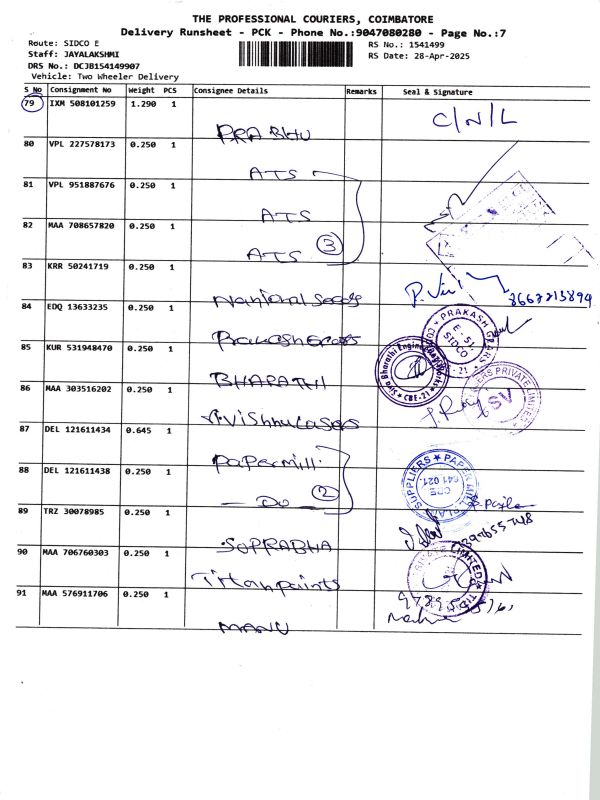 THE PROFESSIONAL COURIERS, COIMBATORE
Delivery Runsheet - PCK - Phone No.:9047080280 - Page No.:7
Route: SIDCO E
RS No.: 1541499
Staff: JAYALAKSHMI
RS Date: 28-Apr-2025
DRS No.: DCJB154149907
Vehicle: Two Wheeler Delivery
S No Consignment No Weight PCS Consignee Details Remarks Seal & Signature
79 IXM 508101259 1.290 1
C/N/L
PRABHU
80 VPL 227578173 0.250 1
ATS
81 VPL 951887676 0.250 1
ATS
82 MAA 708657820 0.250 1
ATS 3
83 KRR 50241719 0.250 1
National Seeds
84 EDQ 13633235 0.250 1
Prakash Gears
PRAKASH GEARS
E 51, SIDCO
85 KUR 531948470 0.250 1
BHARATHI
Bharathi Engineering
CBE-21
86 MAA 303516202 0.250 1
PRIVATE LIMITED
SV
87 DEL 121611434 0.645 1
Papermill
88 DEL 121611438 0.250 1
Do 2
SUPPLIERS ★ PAPER MILL
CBE
641 021.
89 TRZ 30078985 0.250 1
SUPRABHA
90 MAA 706760303 0.250 1
Titan paints
PRIVATE LIMITED
91 MAA 576911706 0.250 1
MANU